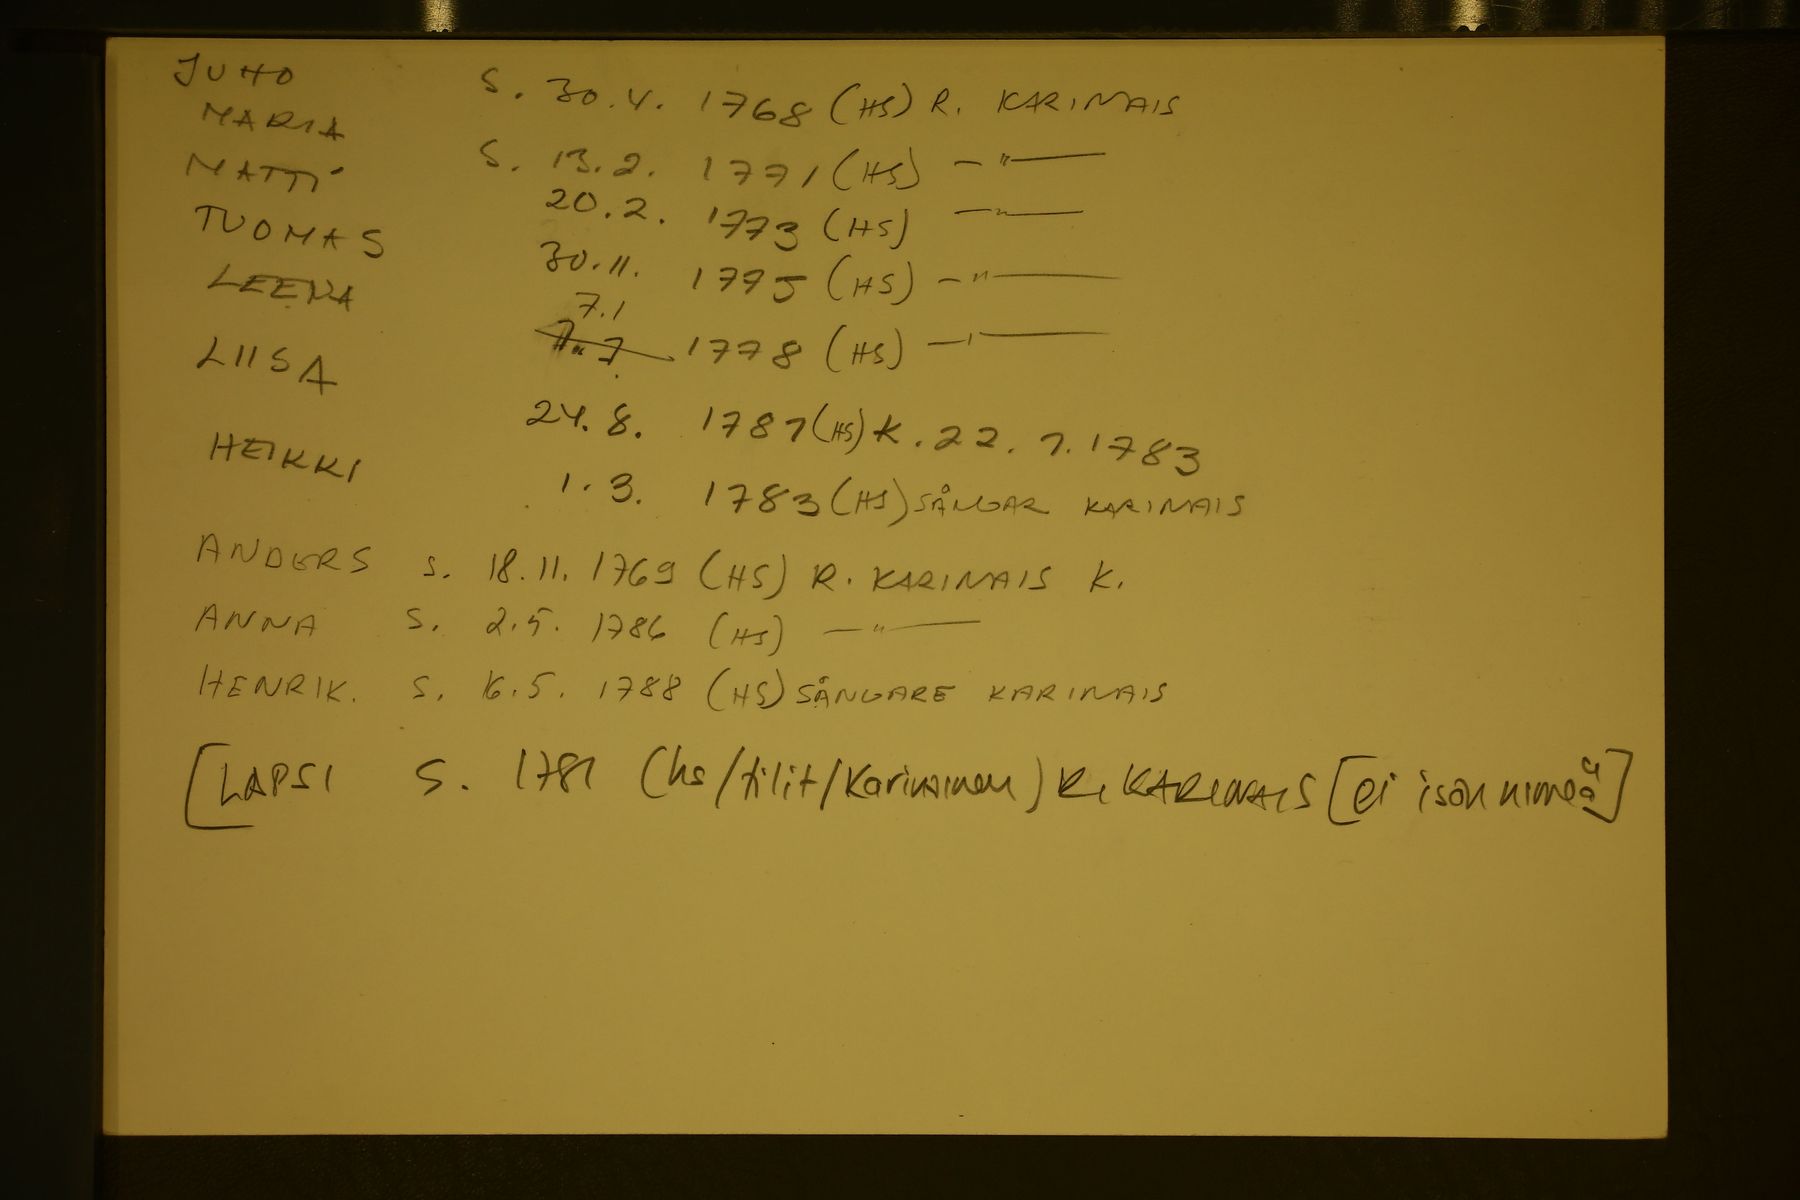 JUHO S. 30.4. 1768 (HS) R. KARINAIS
MARIA S. 13.2. 1771 (HS) — " —
MATTI 20.2. 1773 (HS) — " —
TUOMAS 30.11. 1775 (HS) — " —
LEENA 7.1 1778 (HS) — " —
LIISA 24.8. 1781 (HS) K. 22.7.1783
HEIKKI 1.3. 1783 (HS) SÅNGAR KARINAIS
ANDERS S. 18.11. 1769 (HS) R. KARINAIS K.
ANNA S. 2.5. 1786 (HS) — " —
HENRIK. S. 16.5. 1788 (HS) SÅNGARE KARINAIS
[LAPSI S. 1781 (hs/tilit/Karinainen) R. KARINAIS [ei isän nimeä]